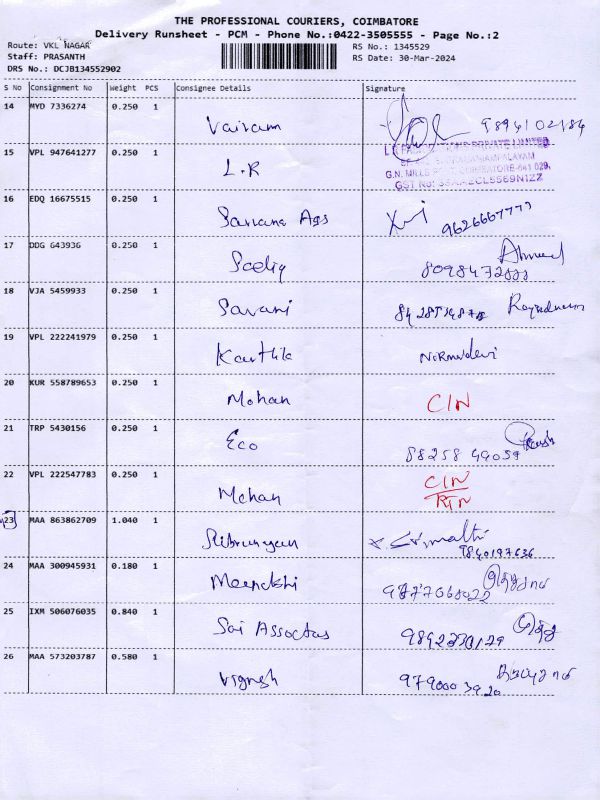 THE PROFESSIONAL COURIERS, COIMBATORE
Delivery Runsheet - PCM - Phone No.:0422-3505555 - Page No.:2
Route: VKL NAGAR RS No.: 1345529
Staff: PRASANTH RS Date: 30-Mar-2024
DRS No.: DCJB134552902
S No Consignment No Weight PCS Consignee Details Signature
14 MYD 7336274 0.250 1 Vairam
15 VPL 947641277 0.250 1 L.R
G.N. MILLS POST, COIMBATORE-641 029.
16 EDQ 16675515 0.250 1 Sarvana Ags 9626667777
17 DDG 643936 0.250 1 Sadiq Ahmed
18 VJA 5459933 0.250 1 Savani
19 VPL 222241979 0.250 1 Karthik Nirmaldevi
20 KUR 558789653 0.250 1 Mohan CIN
21 TRP 5430156 0.250 1 Eco 88258 49059
22 VPL 222547783 0.250 1 Mohan CIN
RTN
23 MAA 863862709 1.040 1
9840197636
24 MAA 300945931 0.180 1 Meenakshi
25 IXM 506076035 0.840 1 Sai Assoctas
26 MAA 573203787 0.580 1 Vignesh 9790003920